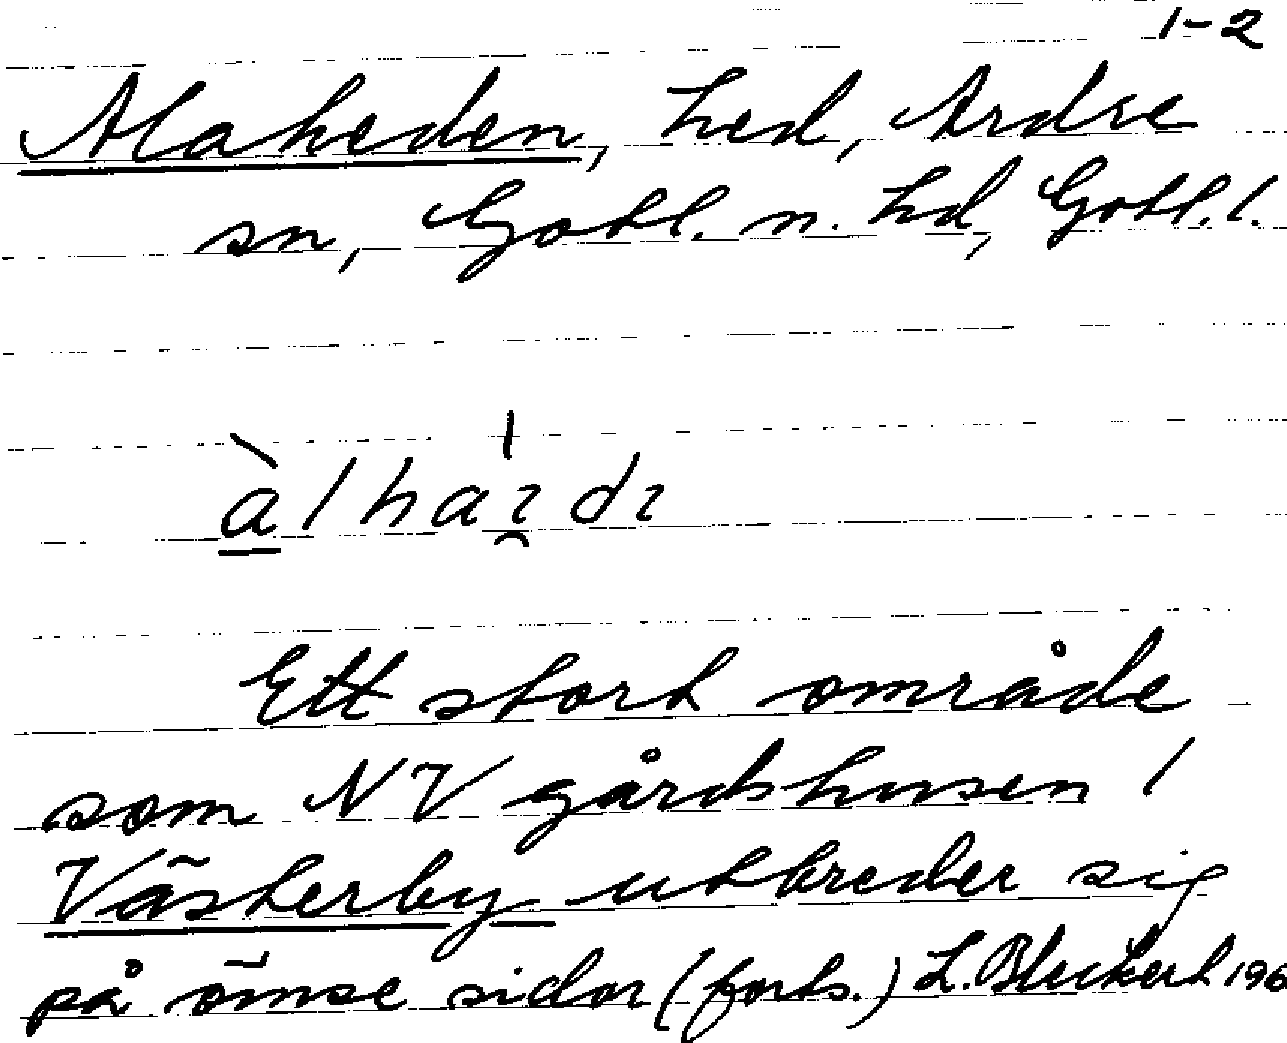 1-2
Alaheden, hed, Ardre
sn, Gotl. n. hd, Gotl. l.
àlhaı̯dı
Ett stort område
som NV gårdshusen i
Västerby utbreder sig
på ömse sidor (forts.) L. Bleckert 196